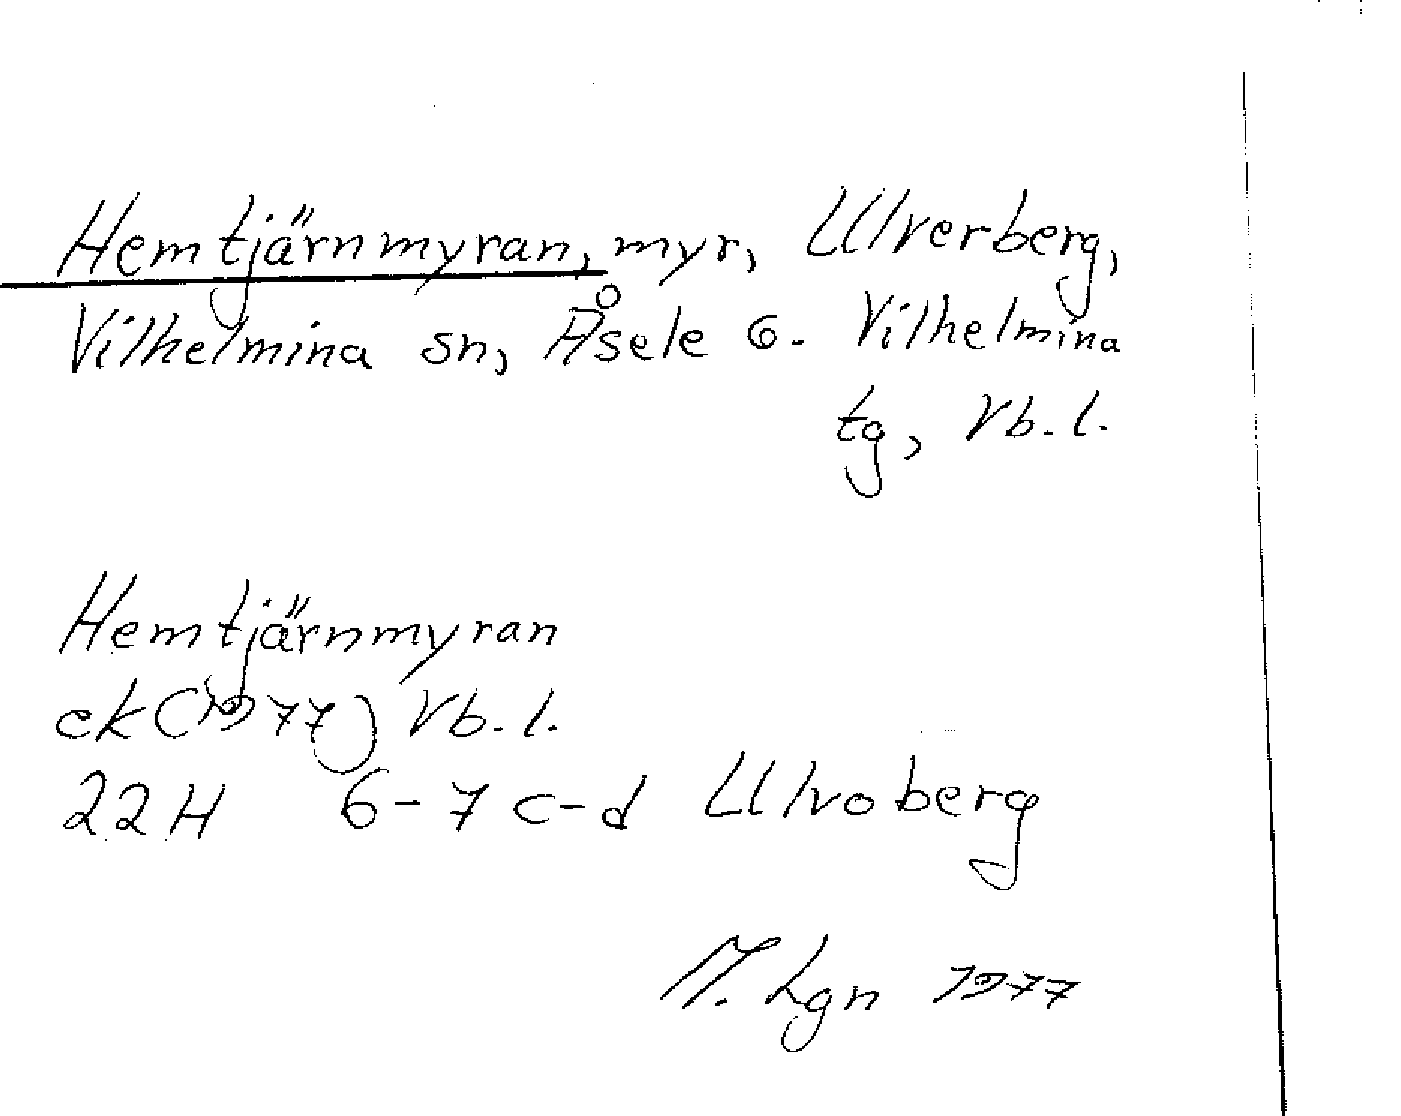 Hemtjärnmyran, myr, Ulverberg,
Vilhelmina sn, Åsele 6. Vilhelmina
tg, Vb. l.
Hemtjärnmyran
ek (1977) Vb. l.
22H 6-7 c-d Ulvoberg
M. Lgn 1977